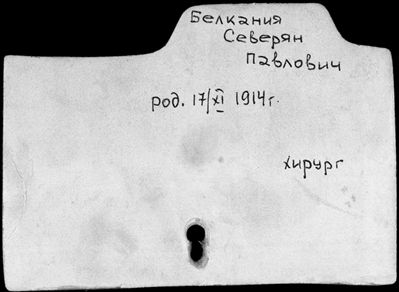 Белкания
Северян
Павлович
род. 17/XI 1914г.
хирург